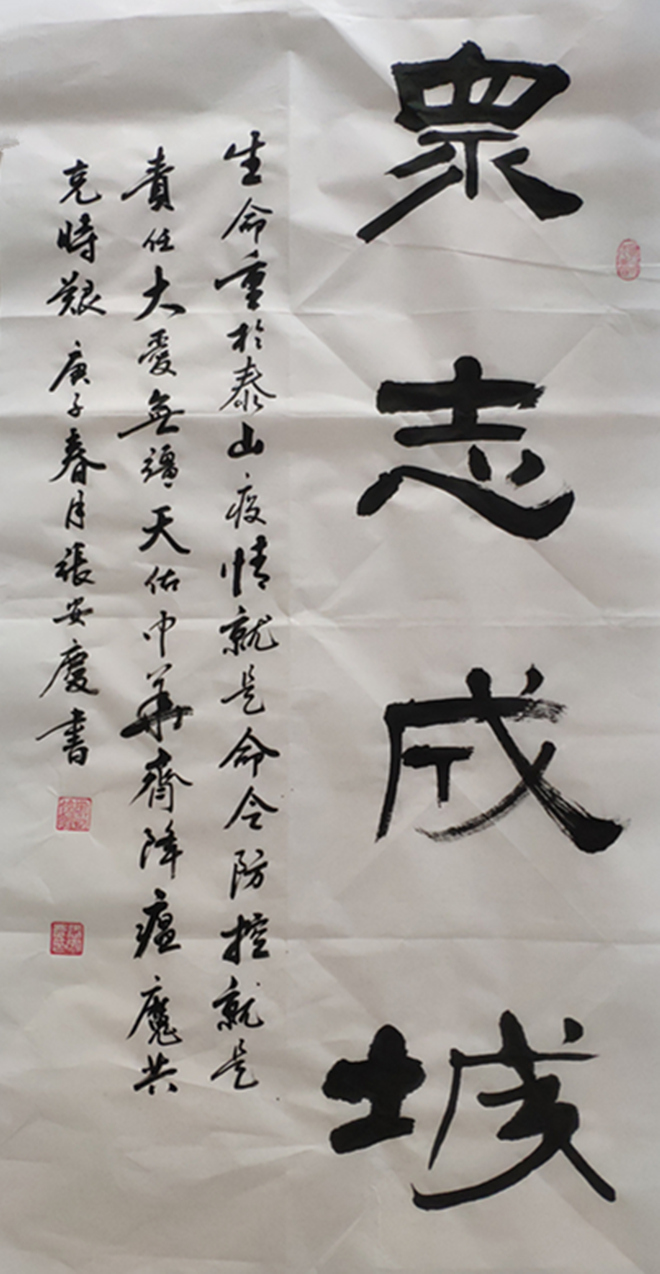 眾志成城
生命重於泰山疫情就是命令防控就是
責任大愛無疆天佑中華齊降瘟魔共
克時艱 庚子春月張安慶書